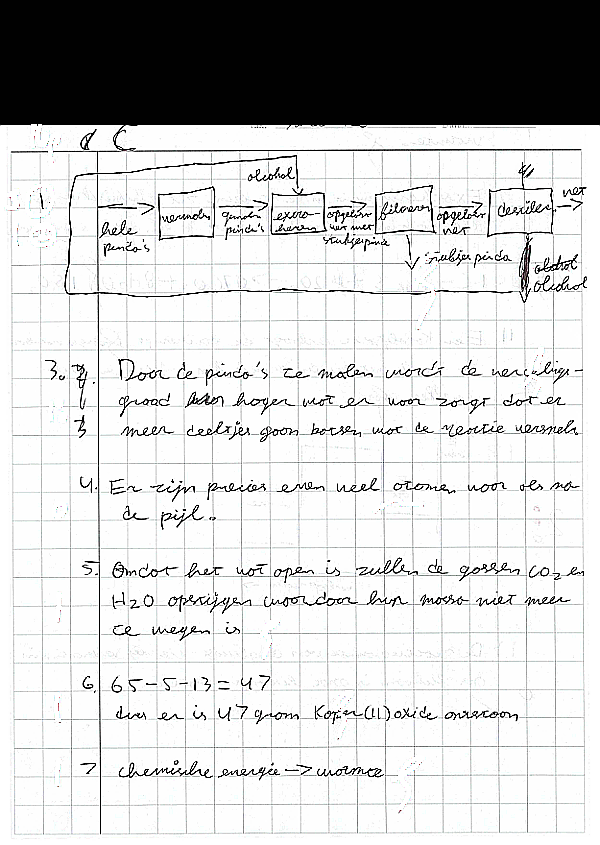 C
alcohol
1
vermalen
extra-
heren
filtreren
destilleren
vet
hele
pinda's
gemalen
pinda's
opgelost
vet met
stukjes pinda
opgelost
vet
stukjes pinda
alcohol
3. Door de pinda's te malen wordt de verdelings-
graad hoger wat er voor zorgt dat er
meer deeltjes gaan botsen wat de reactie versnelt
4. Er zijn precies even veel atomen voor als na
de pijl.
5. Omdat het vat open is zullen de gassen CO2 en
H2O opstijgen waardoor hun massa niet meer
te wegen is
6. 65-5-13=47
dus er is 47 gram Koper(II)oxide ontstaan
7 chemische energie -> warmte